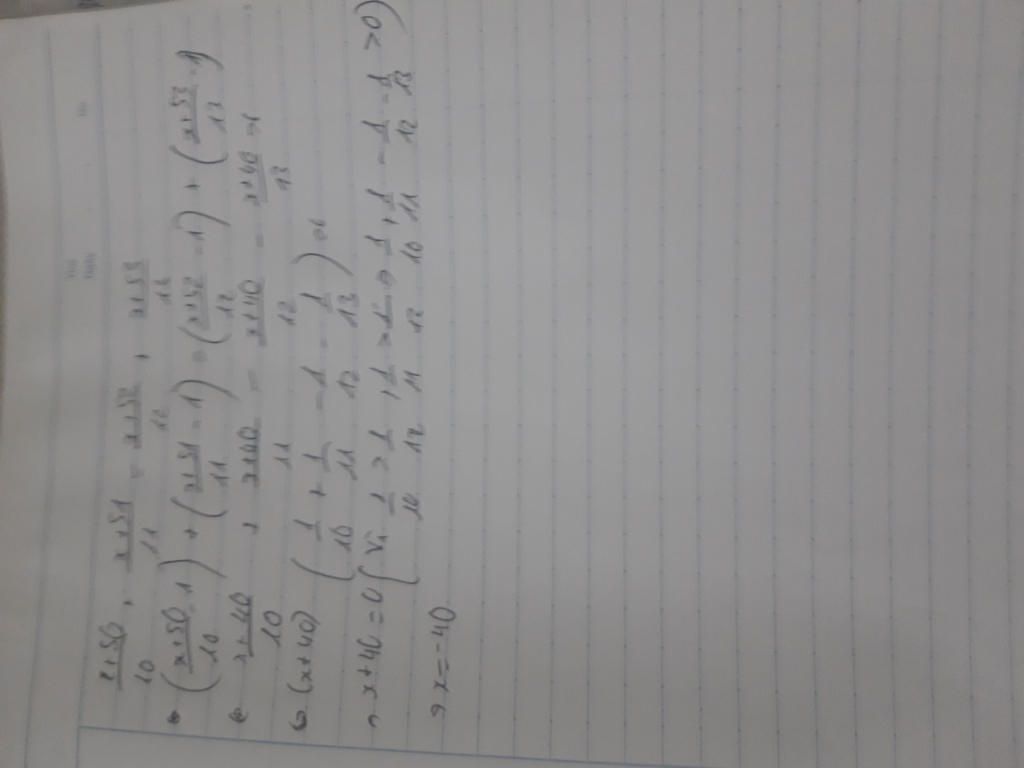 x+50/10 + x+51/11 = x+52/12 + x+53/13
⇔ (x+50/10 - 1) + (x+51/11 - 1) = (x+52/12 - 1) + (x+53/13 - 1)
⇔ x+40/10 + x+40/11 - x+40/12 - x+40/13 = 0
⇔ (x+40) (1/10 + 1/11 - 1/12 - 1/13) = 0
⇒ x+40 = 0 (Vì 1/10 > 1/12, 1/11 > 1/13 ⇒ 1/10 + 1/11 - 1/12 - 1/13 > 0)
⇒ x = -40